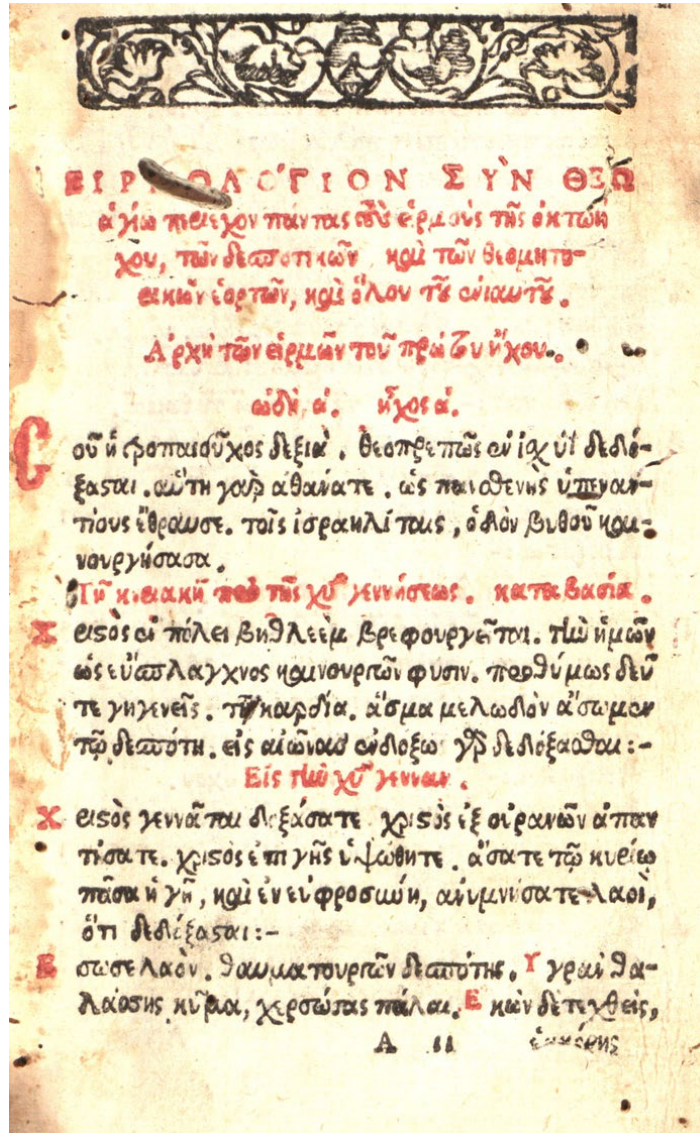 ΕΙΡΜΟΛΟΓΙΟΝ ΣΥΝ ΘΕΩ
ἁγίω περιέχον πάντας τοὺς εἱρμοὺς τῆς ὀκτωή
χου, τῶν δεσποτικῶν καὶ τῶν θεομητο-
ρικῶν ἑορτῶν, καὶ ὅλου τοῦ ἐνιαυτοῦ.
Ἀρχὴ τῶν εἱρμῶν τοῦ πρώτου ἤχου.
ὠδὴ, α. ἦχος α.
Σοῦ ἡ τροπαιοῦχος δεξιὰ, θεοπρεπῶς ἐν ἰσχύϊ δεδό-
ξασται. αὕτη γὰρ ἀθάνατε. ὡς πανσθενὴς ὑπεναν-
τίους ἔθραυσε. τοῖς ἰσραηλίταις, ὁδὸν βυθοῦ και-
νουργήσασα.
Τῆ κυριακῆ πρὸ τῆς χῦ γεννήσεως. καταβασία.
Χριστὸς ἐν πόλει βηθλεὲμ βρεφουργεῖται. τὴν ἡμῶν
ὡς εὔσπλαγχνος καινουργῶν φυσιν. προθύμως δεῦ
τε γηγενεῖς. τῆ καρδία. ἄσμα μελωδὸν ἄσωμεν
τῷ δεσπότη. εἰς αἰῶνας ἐνδόξως γὰρ δεδόξασθαι:-
Εἰς τὴν χῦ γένναν.
Χριστὸς γεννᾶται δοξάσατε χριστὸς ἐξ οὐρανῶν ἀπαν
τήσατε. χριστὸς ἐπι γῆς ὑψώθητε. ἄσατε τῷ κυρίω
πᾶσα ἡ γῆ, καὶ ἐν εὐφροσύνη, ἀνυμνήσατε λαοὶ,
ὅτι δεδόξασται:-
Ἔσωσε λαὸν. θαυματουργῶν δεσπότης. Ὑγρὰν θα-
λάσσης κῦμα, χερσώσας πάλαι. Ἑκὼν δὲ τεχθεὶς,
Α ιι